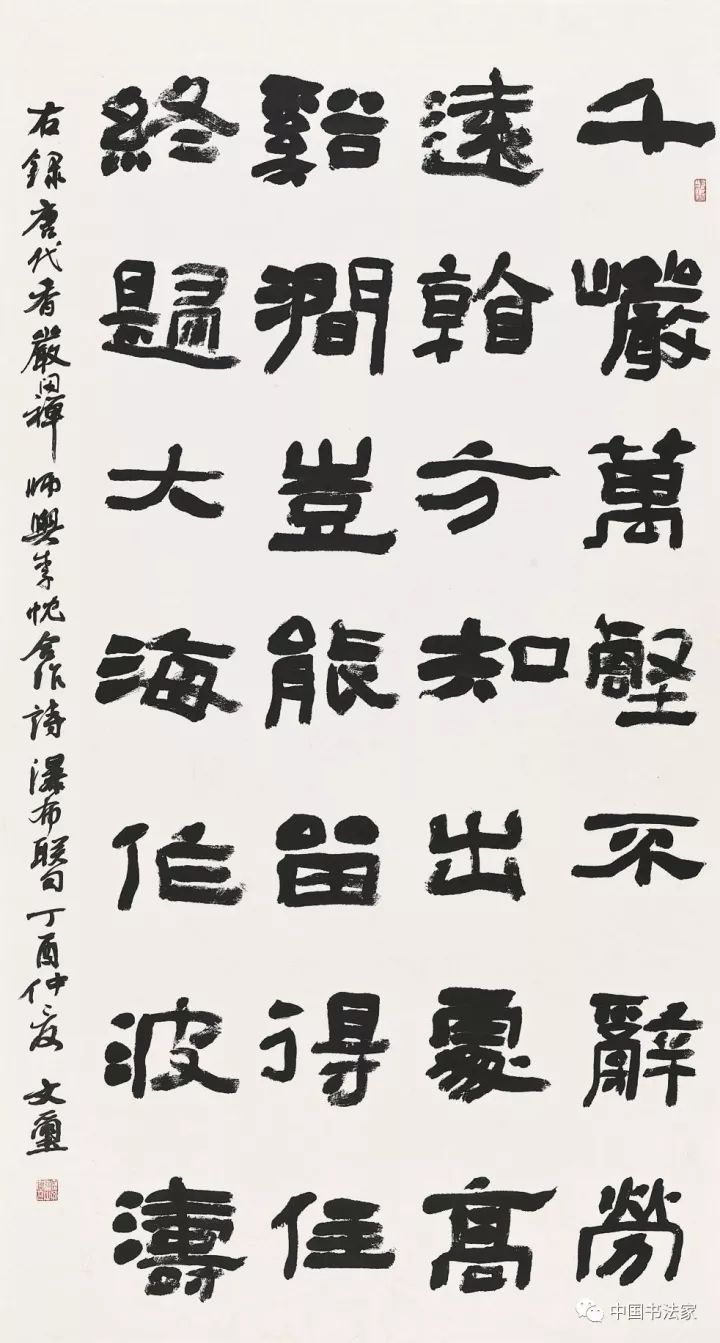 千巖萬壑不辭勞
遠看方知出處高
谿澗豈能留得住
終歸大海作波濤
右錄唐代香嚴閑禪師與李忱合作詩瀑布聯句 丁酉仲夏 文
中国书法家